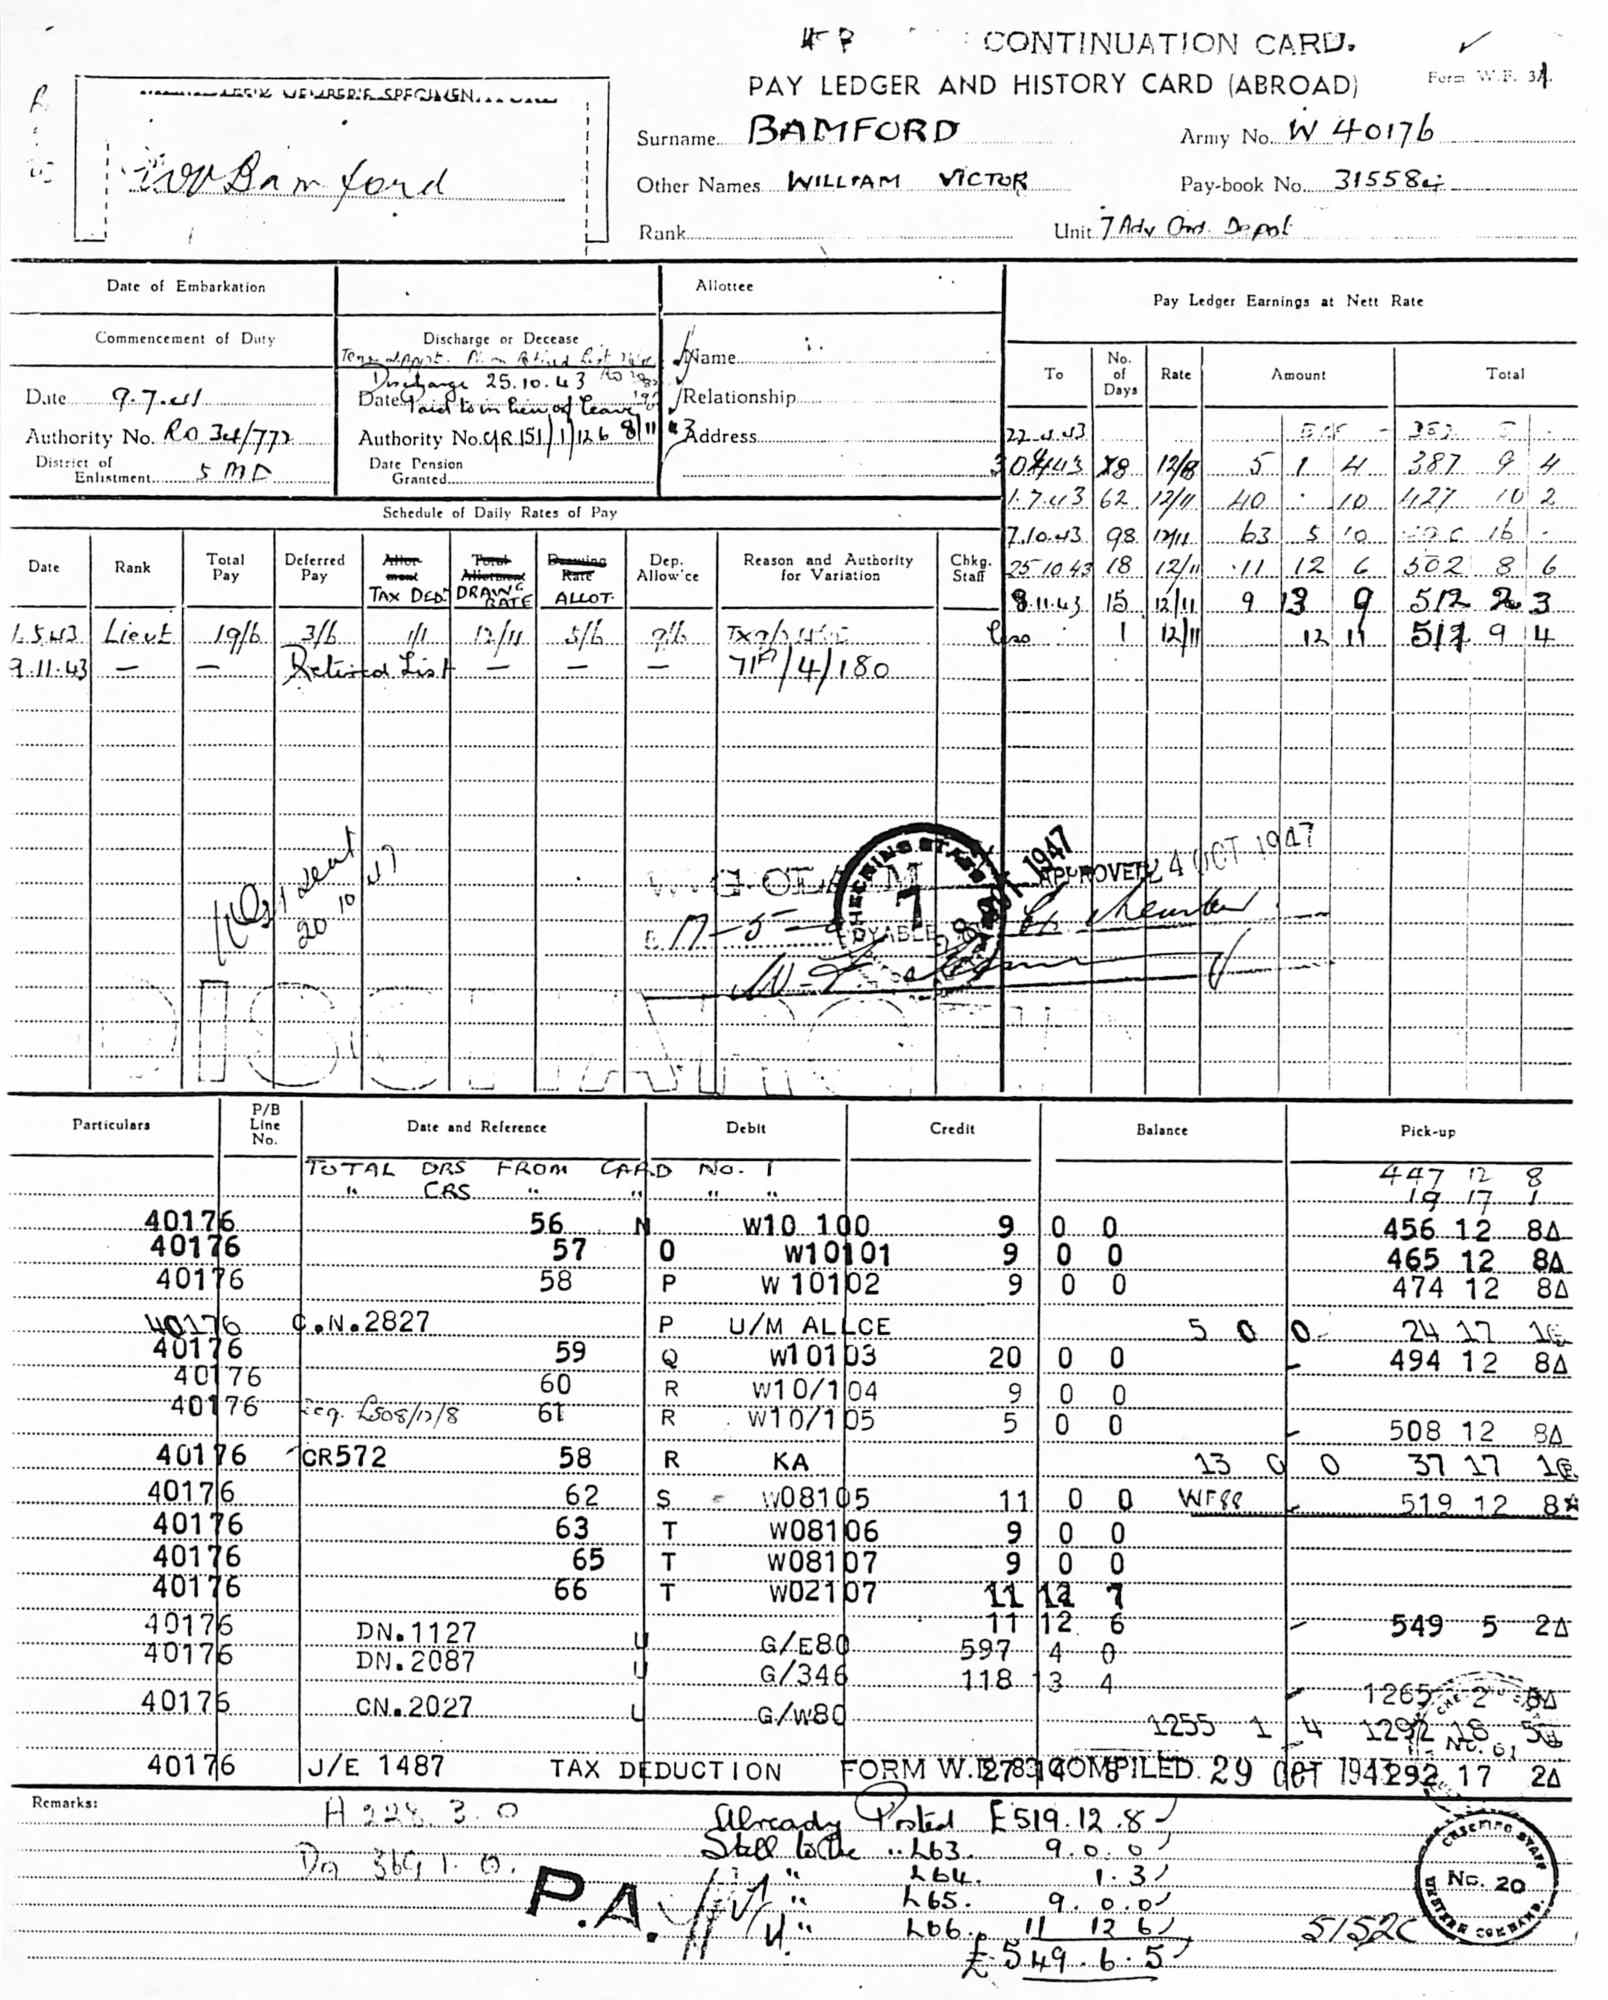 CONTINUATION CARD.
PAY LEDGER AND HISTORY CARD (ABROAD)
Form W.F. 3A.
SPECIMEN
WV Bamford
Surname BAMFORD
Army No. W 40176
Other Names WILLIAM VICTOR
Pay-book No. 315584
Rank
Unit 7 Adv Ord. Depot
Date of Embarkation
Allottee
Pay Ledger Earnings at Nett Rate
Commencement of Duty
Discharge or Decease
Retired List
Discharge 25.10.43
Name
To No. of Days Rate Amount Total
Date 9.7.41
Date Paid to in lieu of leave
Relationship
Authority No. RO 34/772
Authority No. 151/1/126 8/11/43
Address
District of Enlistment 5 MD
Date Pension Granted
22.4.43
30.4.43 8 12/8 5 1 4 387 9 4
1.7.43 62 12/11 40 . 10 427 10 2
7.10.43 98 12/11 63 5 10 16 -
25.10.43 18 12/11 11 12 6 502 8 6
8.11.43 15 12/11 9 13 9 512 2 3
1 12/11 12 11 517 9 4
Schedule of Daily Rates of Pay
Date Rank Total Pay Deferred Pay Allotment Total Allotment Drawing Rate Dep. Allow'ce Reason and Authority for Variation Chkg. Staff
TAX DED. DRAWG RATE ALLOT.
1.5.43 Lieut 19/6 3/6 1/1 12/11 5/6 9/6
9.11.43 — — Retired List — — — 71P/4/180
sent
20/10/47
CHECKING STAFF
7
1947
APPROVED 24 OCT 1947
PAYABLE
Particulars P/B Line No. Date and Reference Debit Credit Balance Pick-up
TOTAL DRS FROM CARD No. 1 447 12 8
" CRS " " " " 19 17 1
40176 56 N W10 100 9 0 0 456 12 8Δ
40176 57 O W10101 9 0 0 465 12 8Δ
40176 58 P W 10102 9 0 0 474 12 8Δ
40176 C.N.2827 P U/M ALLCE 5 0 0 24 17 1
40176 59 Q W10103 20 0 0 494 12 8Δ
40176 60 R W10/104 9 0 0
40176 £508/12/8 61 R W10/105 5 0 0 508 12 8Δ
40176 CR572 58 R KA 13 0 0 37 17 1
40176 62 S W08105 11 0 0 519 12 8
40176 63 T W08106 9 0 0
40176 65 T W08107 9 0 0
40176 66 T W02107 11 12 7
11 12 6 549 5 2Δ
40176 DN.1127 U G/E80 597 4 0
40176 DN.2087 U G/346 118 13 4 1265 2
40176 CN.2027 U G/W80 1255 1 4 1292 18 5
No. 61
40176 J/E 1487 TAX DEDUCTION 27 14 8 292 17 2Δ
FORM W.F. 83 COMPILED. 29 OCT 194
Remarks:
A 228.3.0
Dr 369.1.0.
P.A.
Already Posted £519.12.8
Still to be " L63. 9.0.0
" L64. 1.3
" L65. 9.0.0
" L66. 11 12 6
£549.6.5
5152C
CHECKING STAFF
No. 20
WESTERN COMMAND